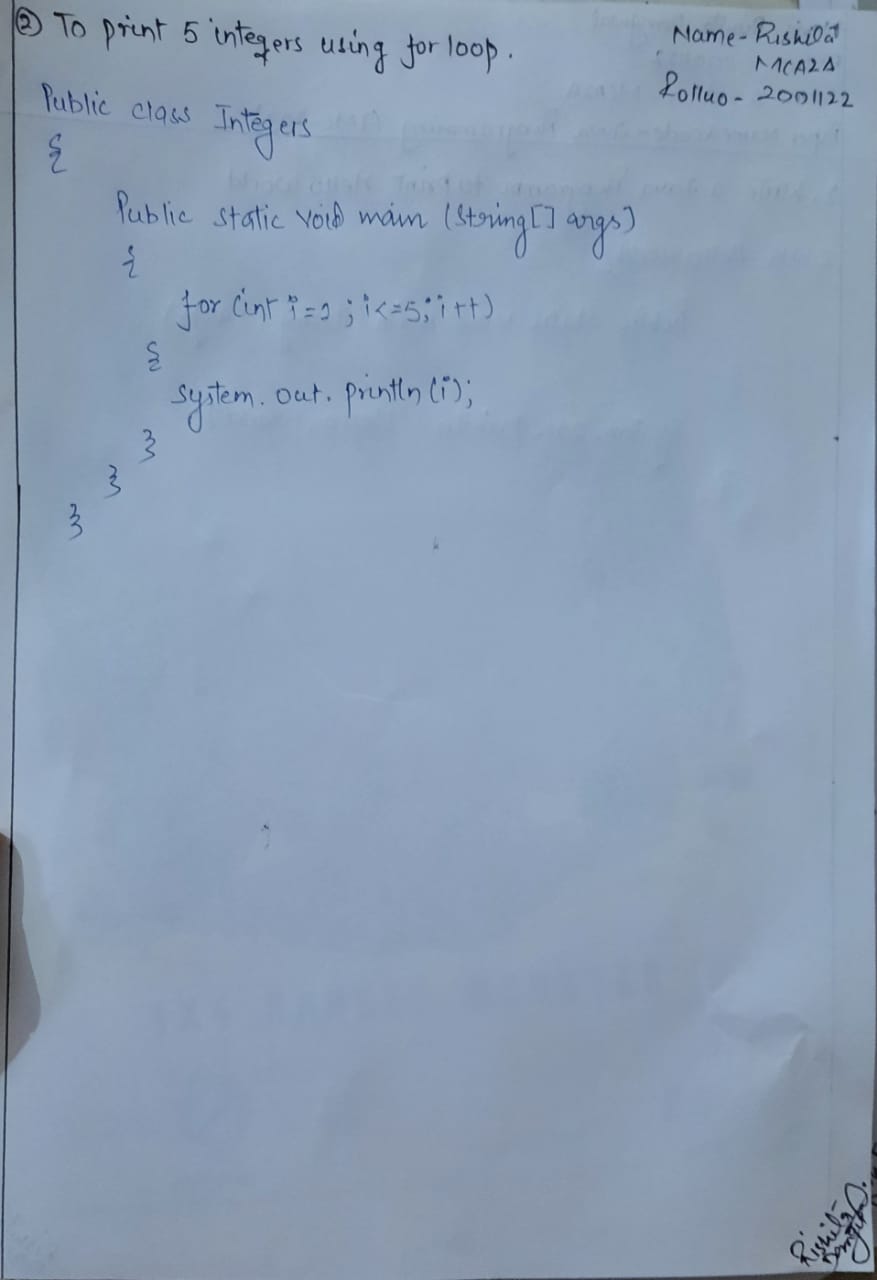 ② To print 5 integers using for loop.
Name - Rishilat
MCA2A
Rollno - 2001122
Public class Integers
{
Public static void main (String[] args)
{
for (int i=1; i<=5; i++)
{
system. out. println (i);
}
}
}